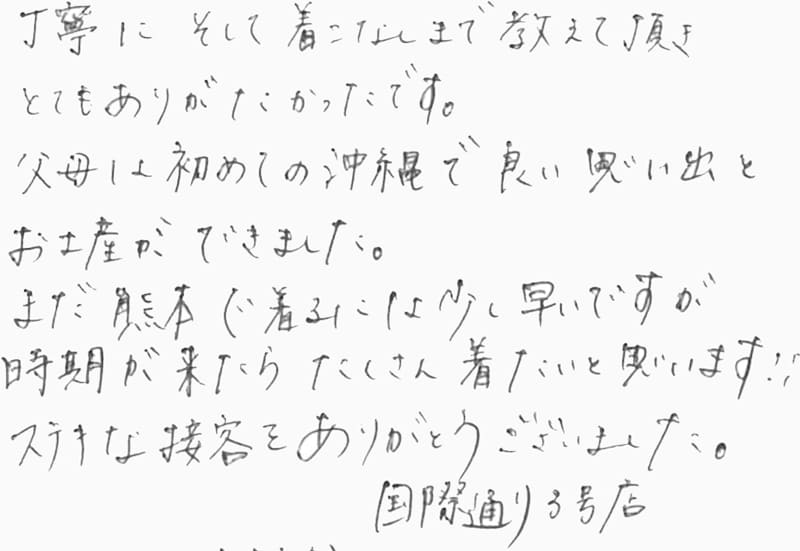 丁寧に そして 着こなしまで 教えて頂き
とてもありがたかったです。
父母は初めての沖縄で 良い思い出と
お土産ができました。
まだ熊本で着るには少し早いですが
時期が来たら たくさん着たいと思います!!
ステキな接客をありがとうございました。
国際通り3号店